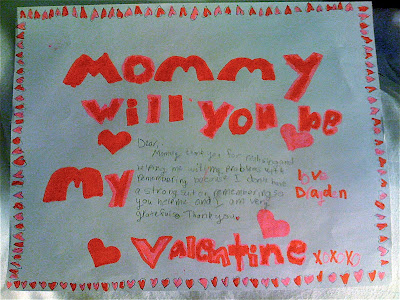 Mommy
will you be
Dear,
Mommy thank you for making and
helping me with my problems with
remembering because I don't have
a strong at on remembering so
you help me and I am very
grateful. Thank you
my
love
Drayden
Valentine xoxoxo